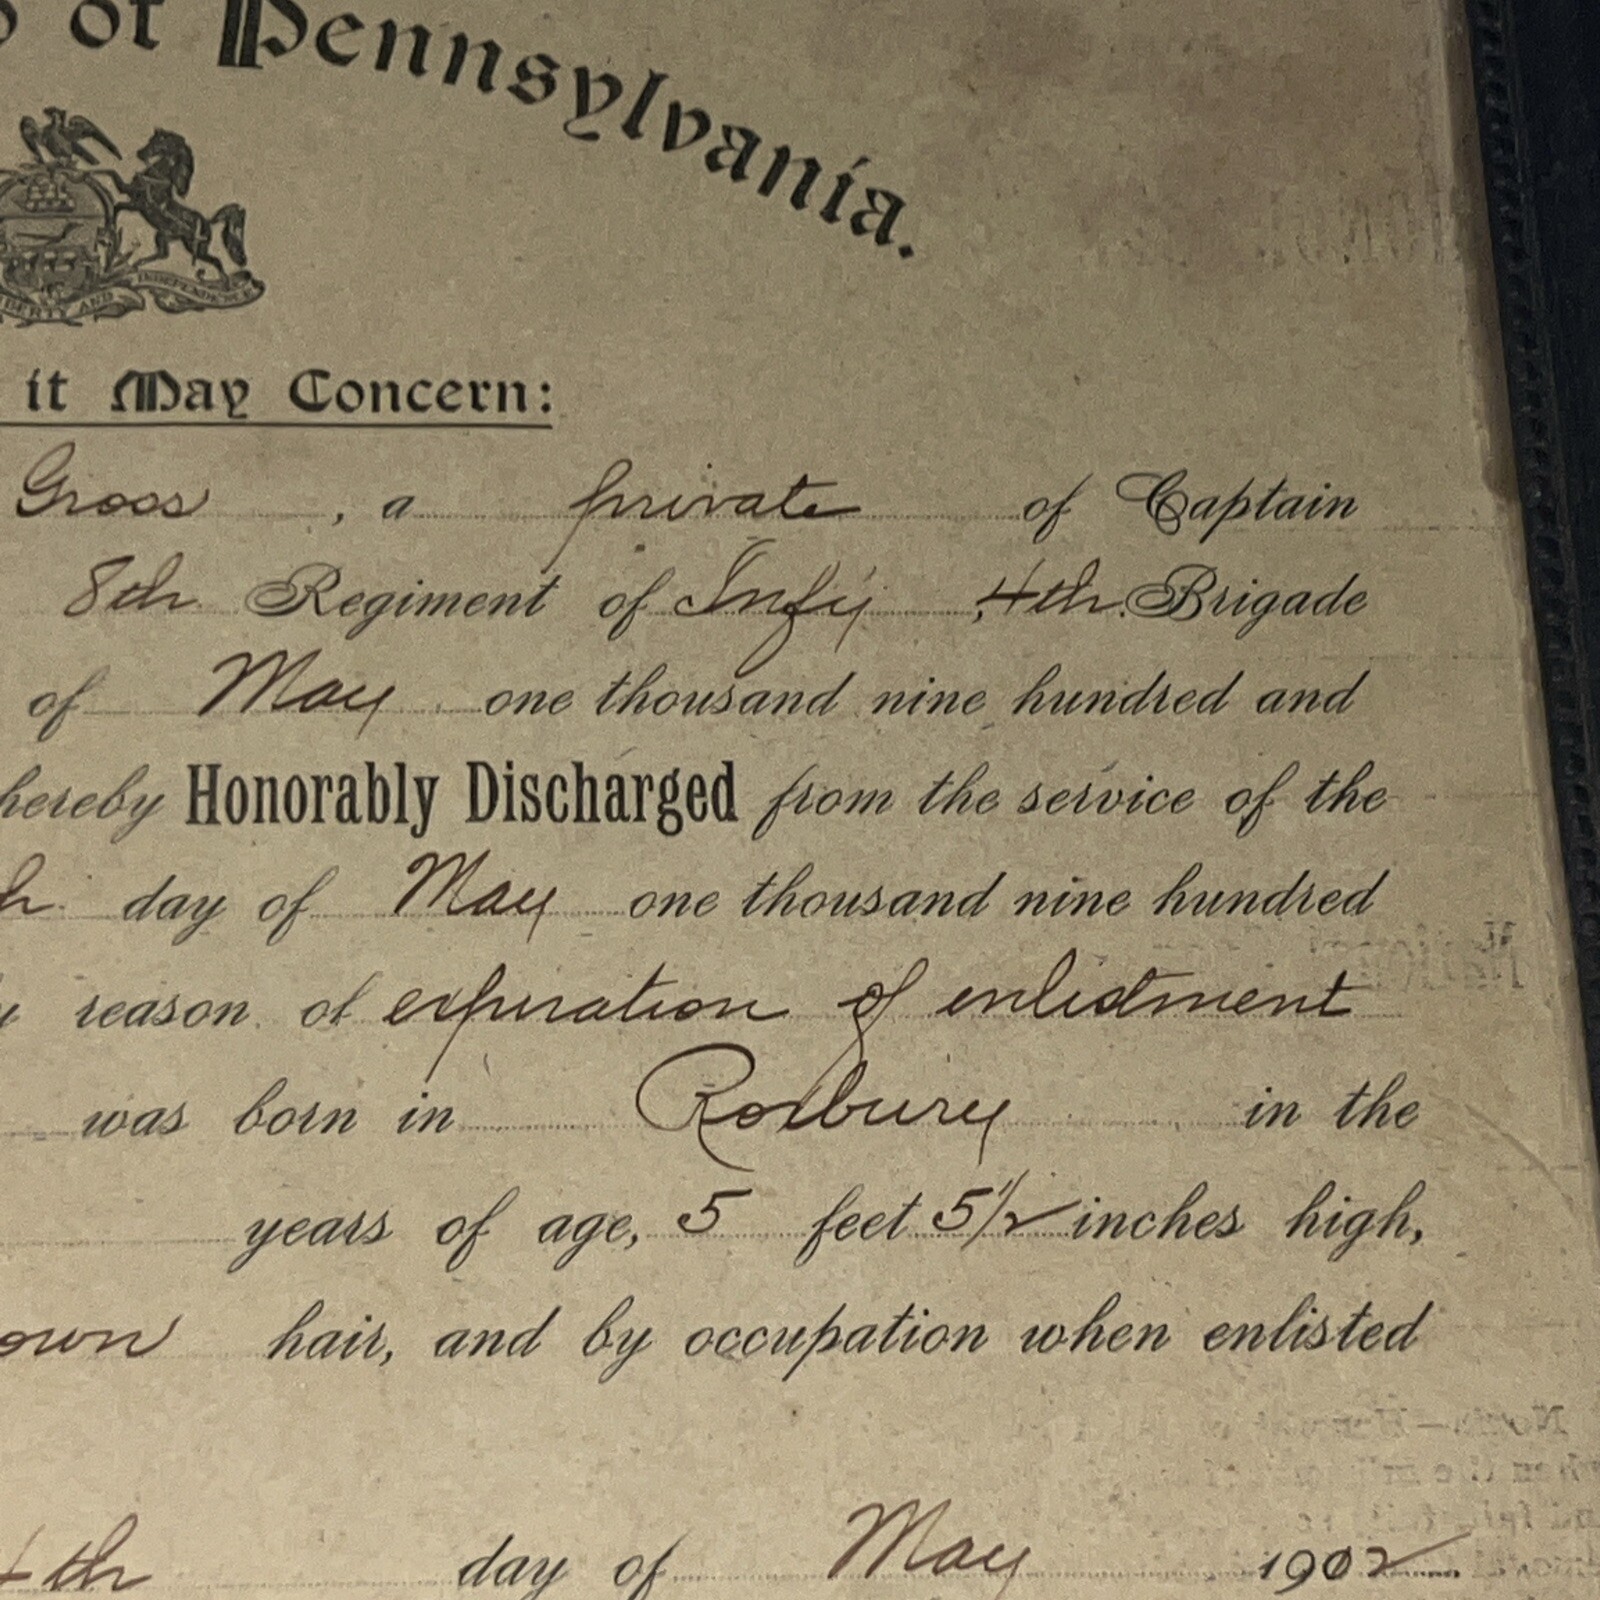 of Pennsylvania.
LIBERTY AND INDEPENDENCE
it May Concern:
Gross , a private of Captain
8th Regiment of Infy , 4th Brigade
of May one thousand nine hundred and
hereby Honorably Discharged from the service of the
day of May one thousand nine hundred
reason of expiration of enlistment
was born in Roxbury in the
years of age, 5 feet 5 1/2 inches high,
own hair, and by occupation when enlisted
4th day of May 1902